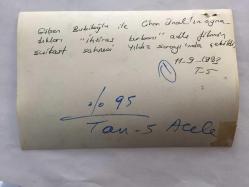 Özben Bubikoğlu ile Cihan Ünal'ın oyna-
dıkları "ihtiras kurbanı" adlı filmin
suikast sahnesi Yıldız sarayı'nda çekildi
11-9-1993
T-5
% 95
Tan-5 Acele